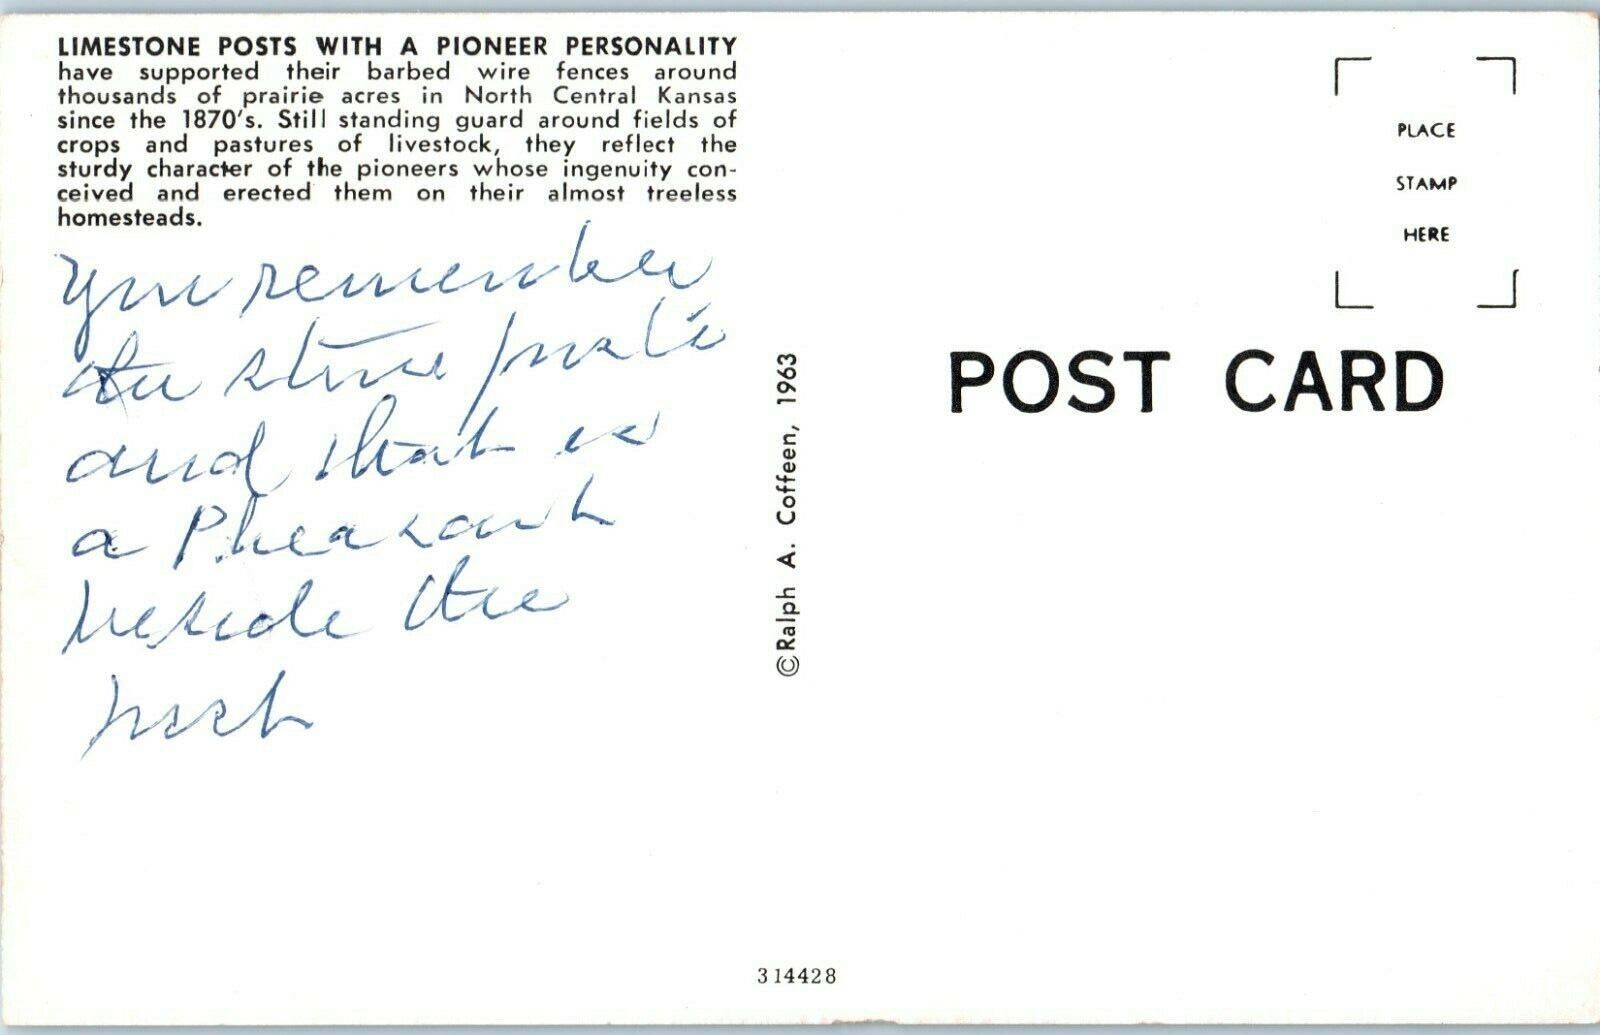 LIMESTONE POSTS WITH A PIONEER PERSONALITY
have supported their barbed wire fences around
thousands of prairie acres in North Central Kansas
since the 1870's. Still standing guard around fields of
crops and pastures of livestock, they reflect the
sturdy character of the pioneers whose ingenuity con-
ceived and erected them on their almost treeless
homesteads.
you remember
the stone posts
and that is
a Pheasant
beside the
post
©Ralph A. Coffeen, 1963
PLACE
STAMP
HERE
POST CARD
314428